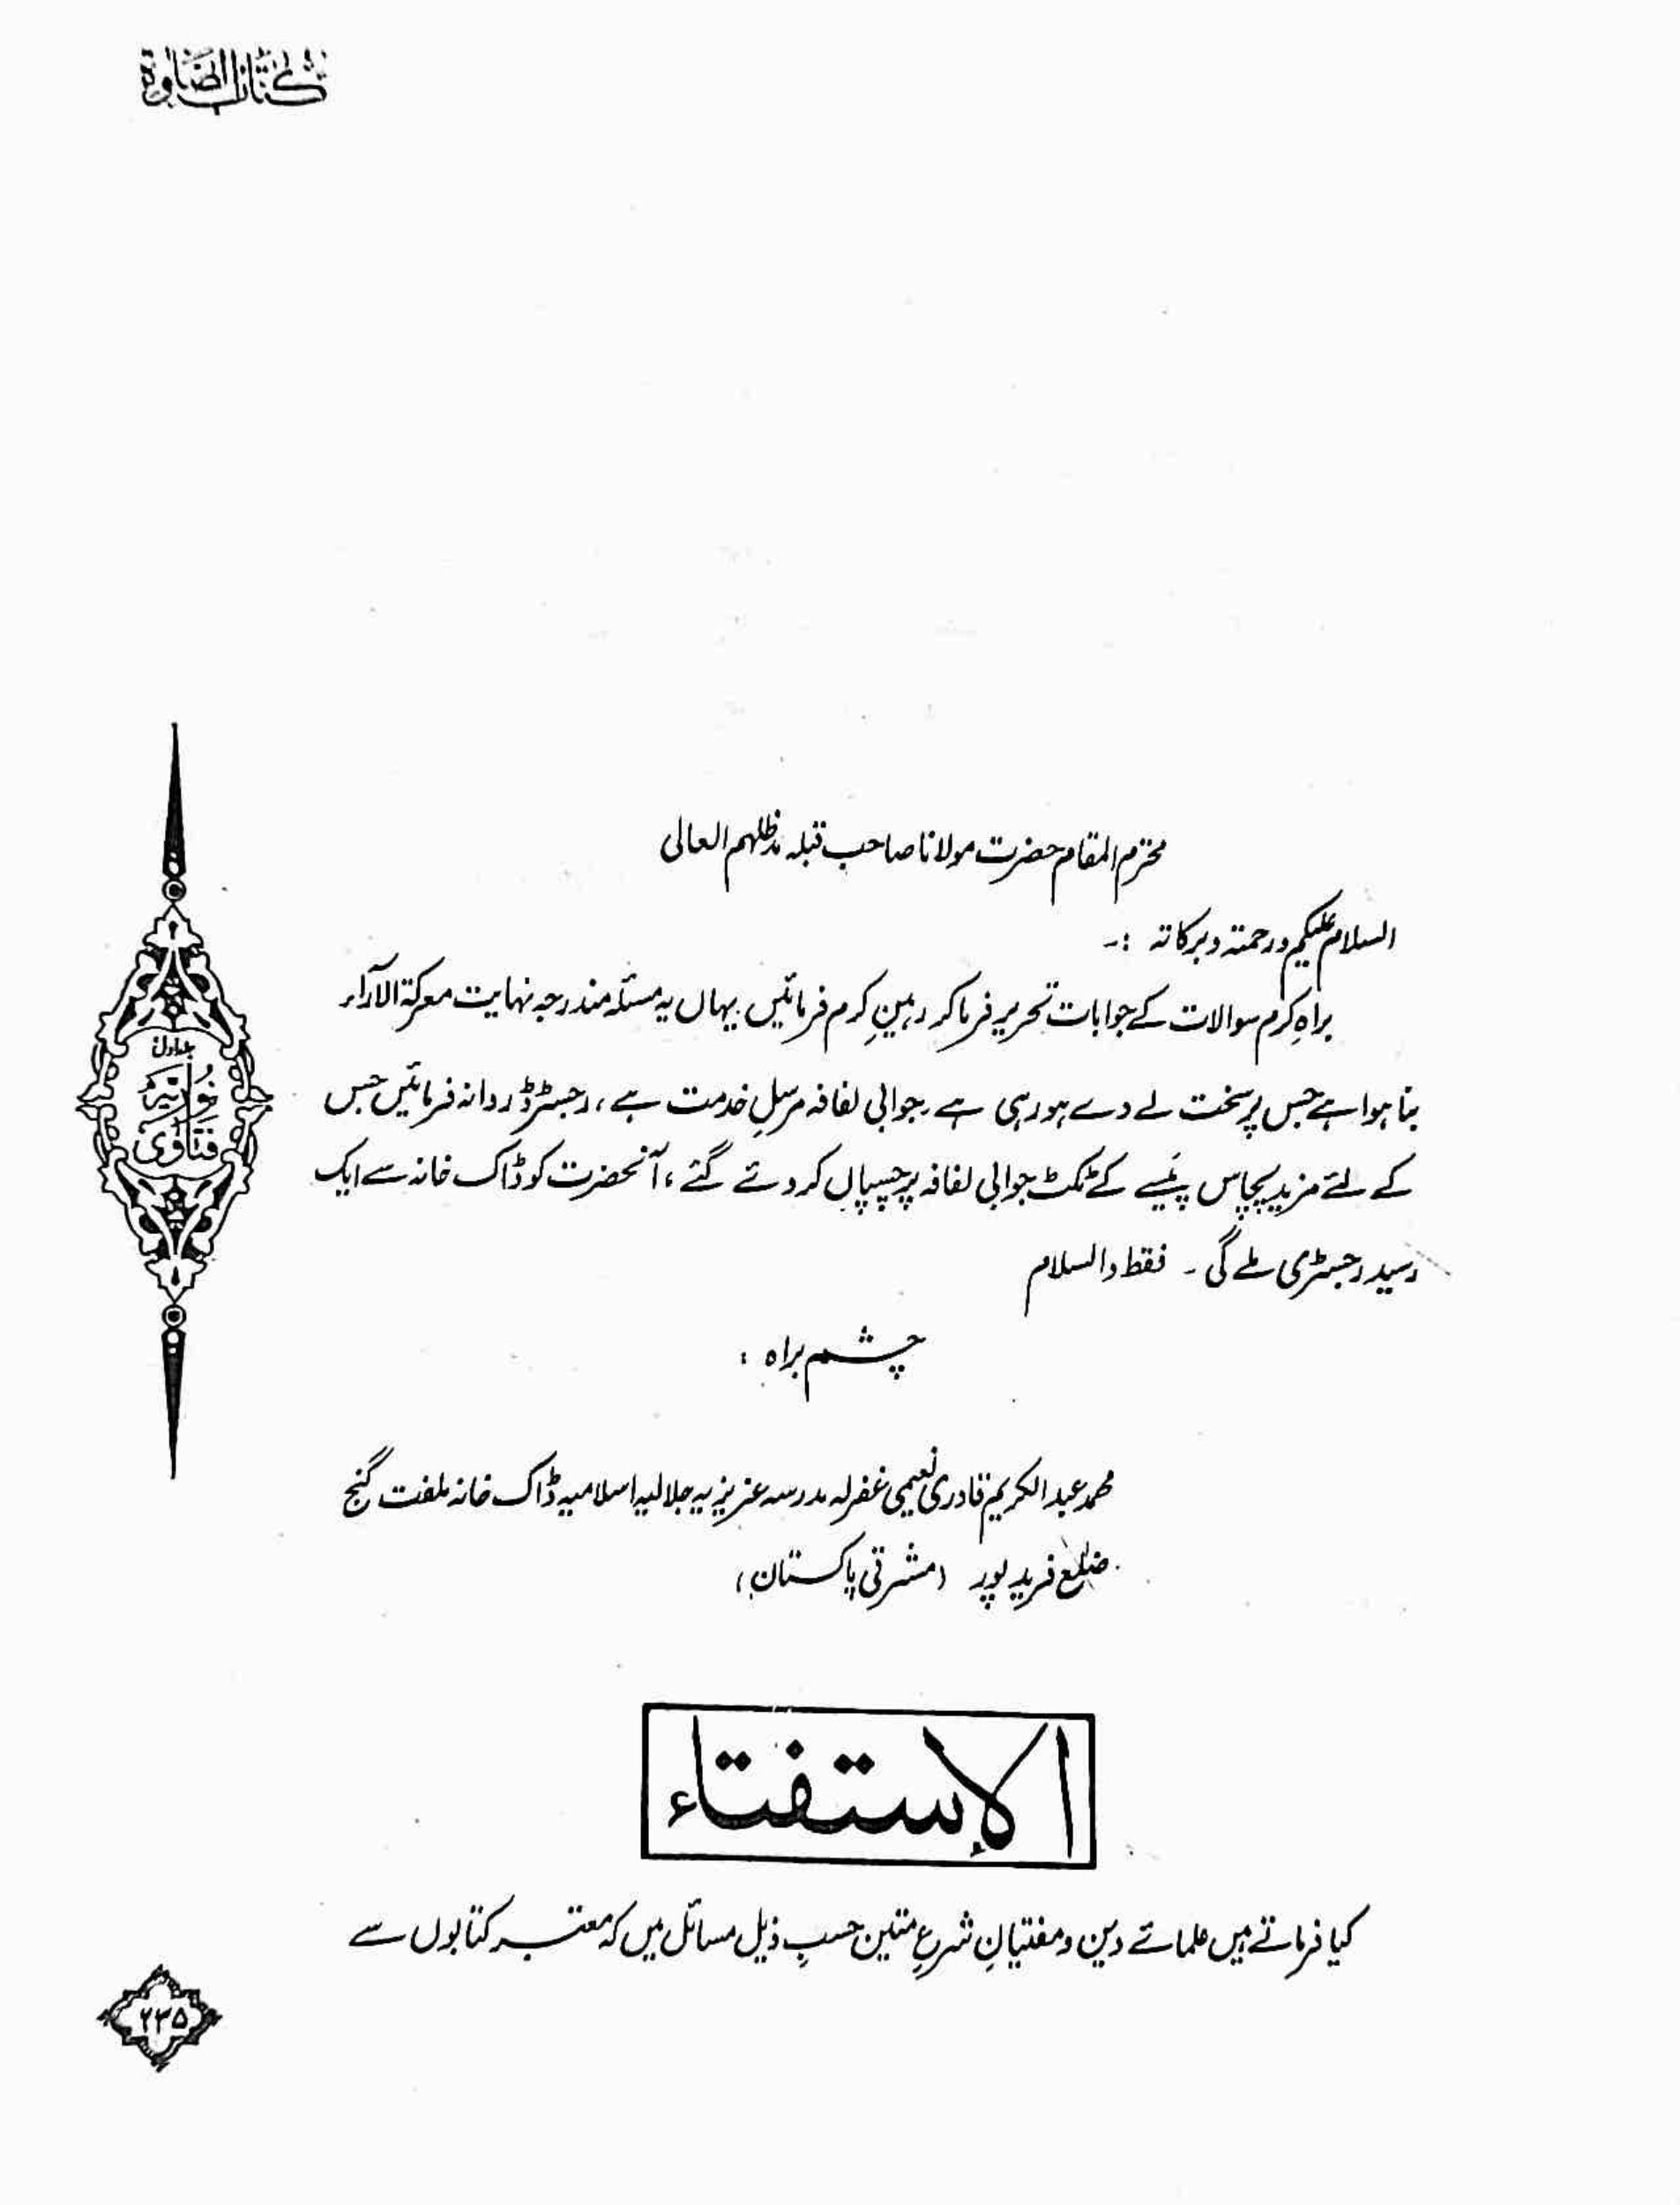 كتاب الصلوة
محترم المقام حضرت مولانا صاحب قبلہ مدظلہم العالی
السلام علیکم ورحمتہ وبرکاتہ :۔
براہِ کرم سوالات کے جوابات تحریر فرما کر رہینِ کرم فرمائیں یہاں یہ مسئلہ مندرجہ نہایت معرکۃ الآراء
بنا ہوا ہے جس پر سخت لے دے ہو رہی ہے جوابی لفافہ مرسلِ خدمت ہے، رجسٹرڈ روانہ فرمائیں جس
کے لئے مزید پچاس پیسے کے ٹکٹ جوابی لفافہ پر چسپاں کر دئے گئے، آنحضرت کو ڈاک خانہ سے ایک
رسید رجسٹری ملے گی ۔ فقط والسلام
چشم براہ :
محمد عبد الکریم قادری نعیمی غفرلہ مدرسہ عزیزیہ جلالیہ اسلامیہ ڈاک خانہ ملفت گنج
ضلع فرید پور (مشرقی پاکستان)
جلد اول
فتاوٰی نوریہ
الإستفتاء
کیا فرماتے ہیں علمائے دین و مفتیانِ شرعِ متین حسبِ ذیل مسائل میں کہ معتبر کتابوں سے
۲۳۵